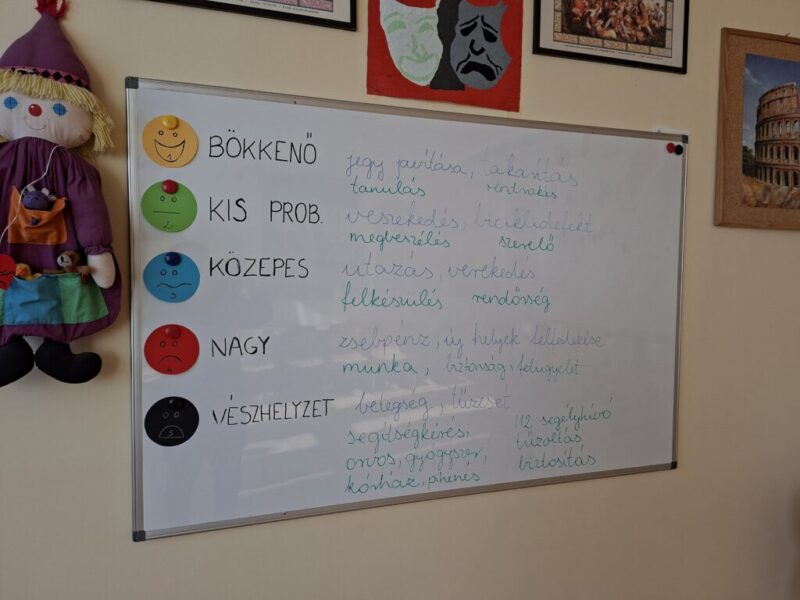 BÖKKENŐ
jegy javítása, takarítás
tanulás rendrakás
KIS PROB.
veszekedés, biciklidefekt
megbeszélés szerelő
KÖZEPES
utazás, verekedés
felkészülés rendőrség
NAGY
zsebpénz, új helyek felfedezése
munka, biztonság, felügyelet
VÉSZHELYZET
betegség, tűzeset
segítségkérés, 112, segélyhívó
orvos, gyógyszer, tűzoltás
kórház, pihenés biztosítás